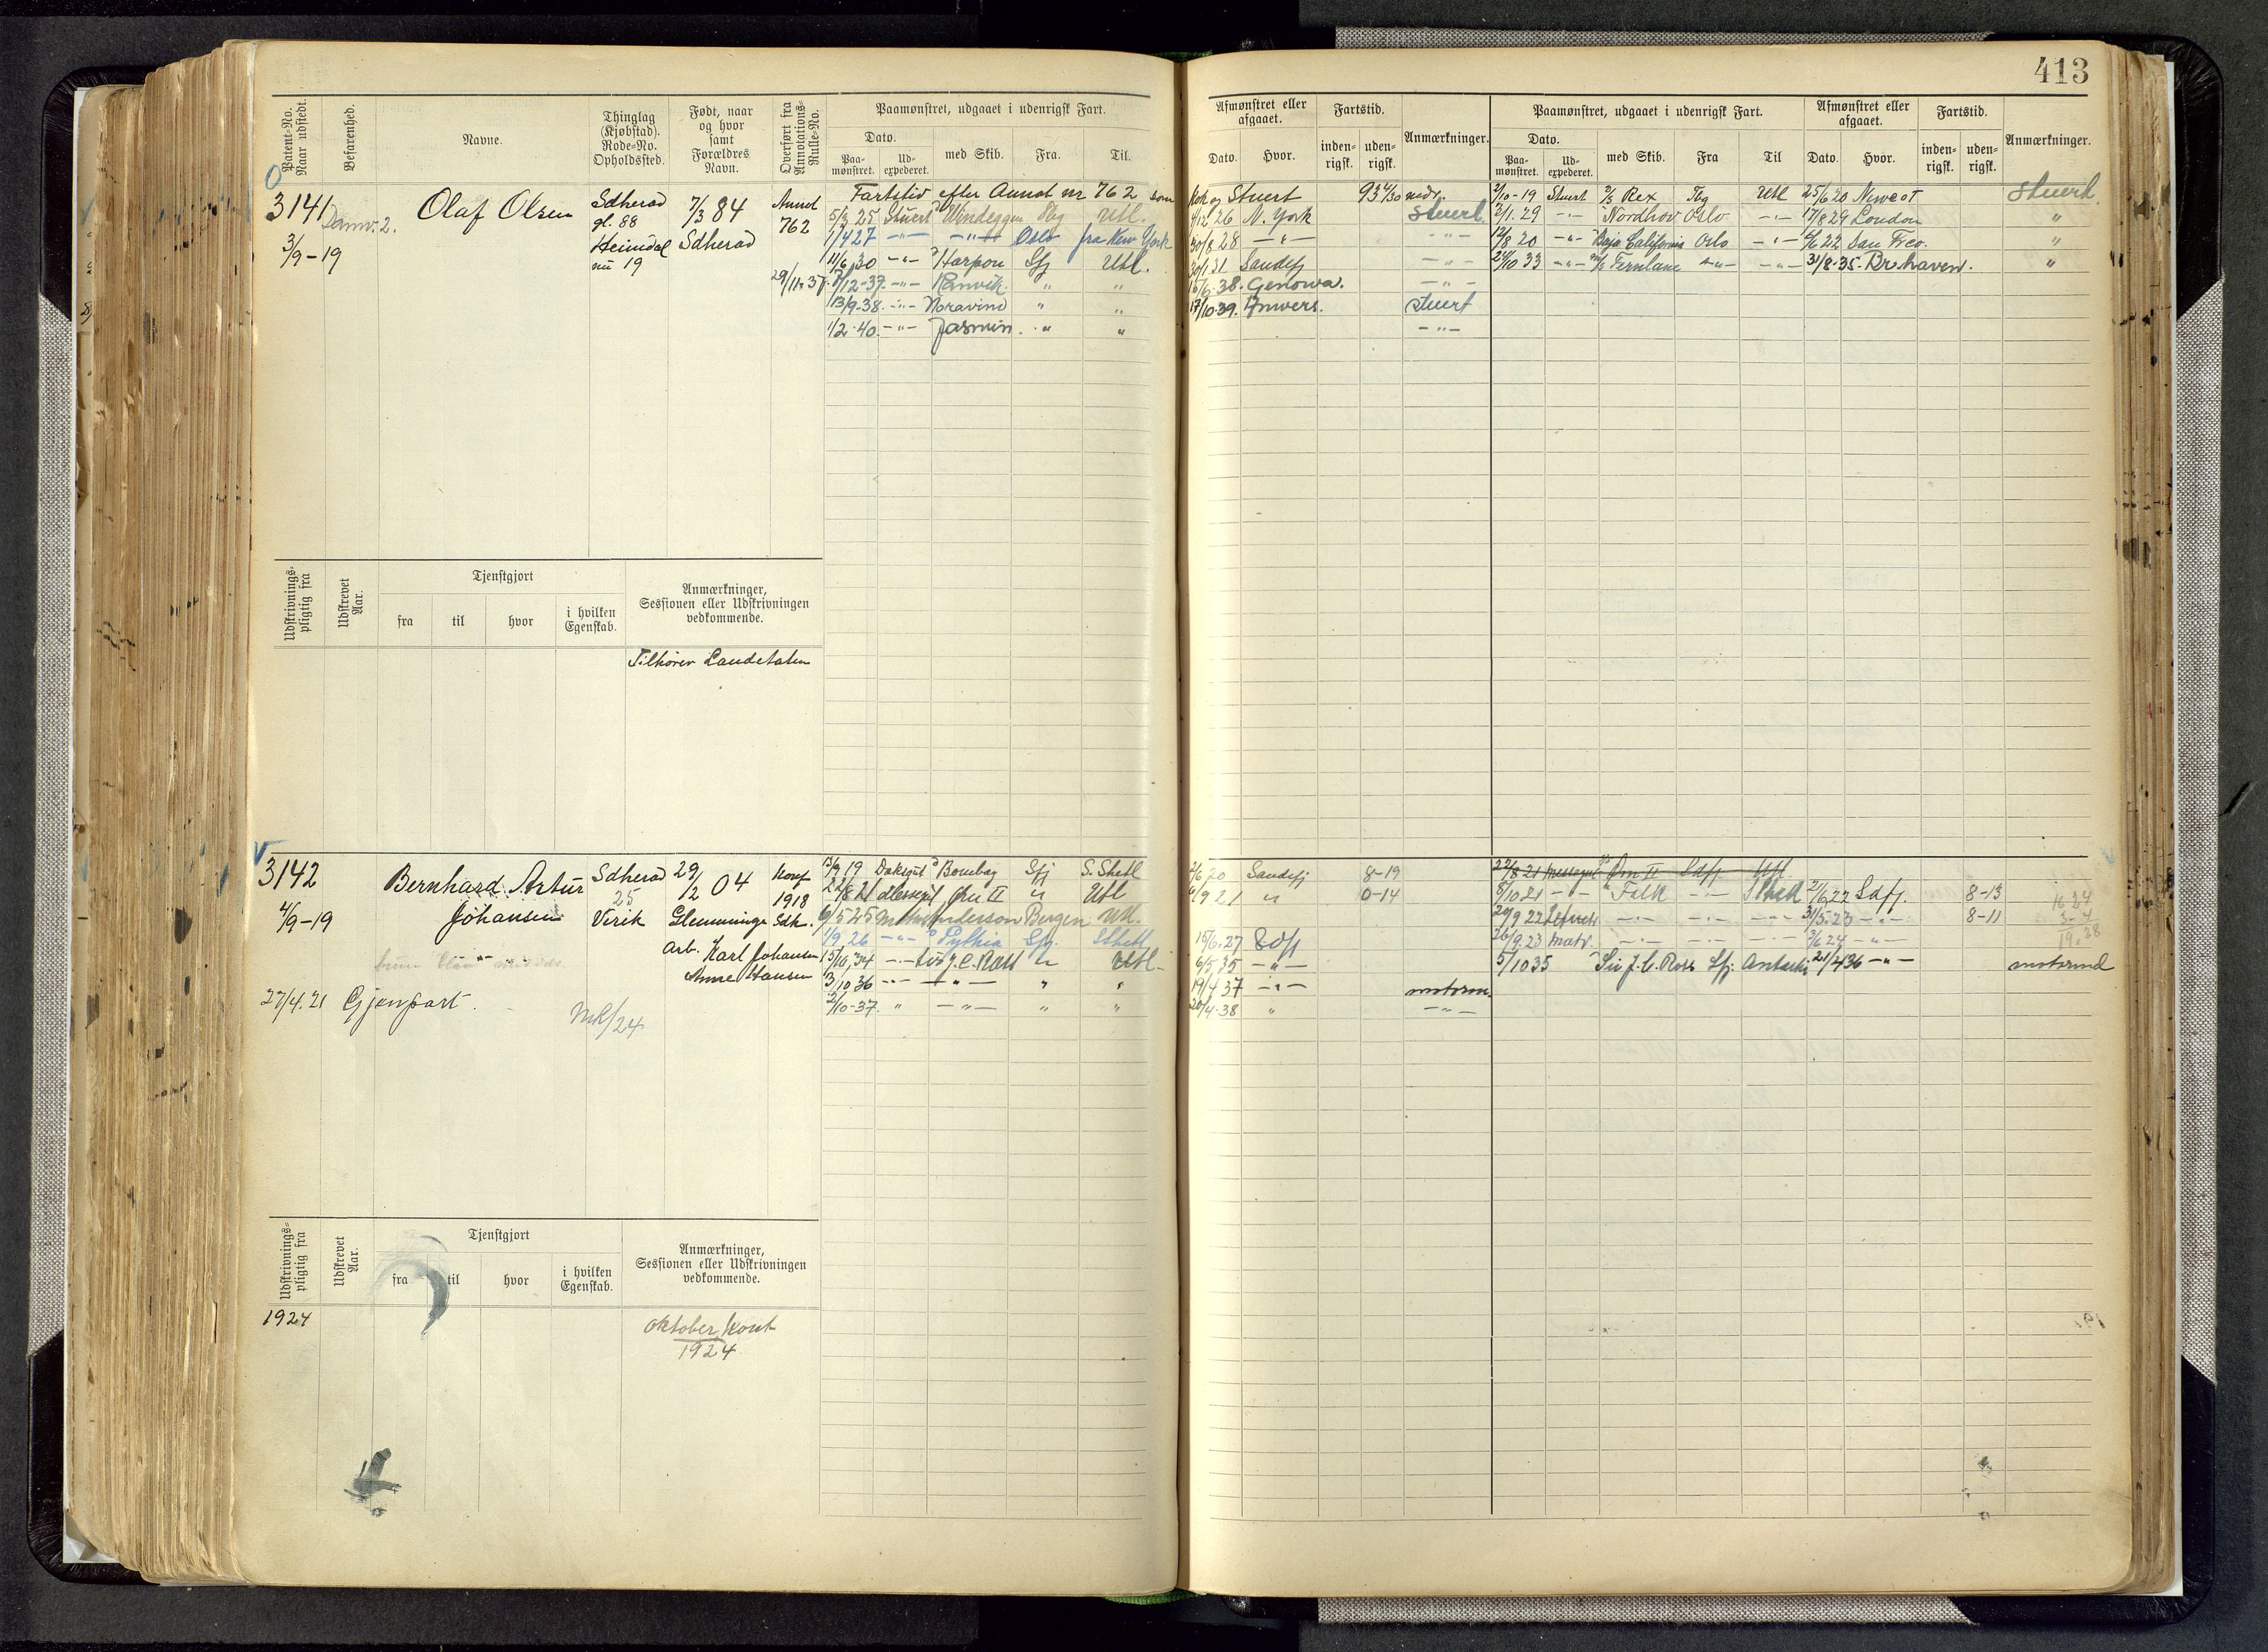 413
Patent-No. Naar udstedt.
Befarenhed.
Navne.
Thinglag (Kjøbstad). Rode-No. Opholdssted.
Født, naar og hvor samt Forældres Navn.
Overført fra Annotations-Rulle-No.
Paamønstret, udgaaet i udenrigsk Fart.
Dato.
Paa-mønstret.
Ud-expederet.
med Skib.
Fra.
Til.
Afmønstret eller afgaaet.
Dato.
Hvor.
Fartstid.
inden-rigsk.
uden-rigsk.
Anmærkninger.
Paamønstret, udgaaet i udenrigsk Fart.
Dato.
Paa-mønstret.
Ud-expederet.
med Skib.
Fra
Til
Afmønstret eller afgaaet.
Dato.
Hvor.
Fartstid.
inden-rigsk.
uden-rigsk.
Anmærkninger.
3141
3/9-19
Olaf Olsen
Sdherad
gl. 88
Heimdal
nu 19
7/3 84
Sdherad
Annot
762
29/11-37
Fartstid efter Annot nr 762 som
5/3 25 Stuert Vindeggen Tbg Utl.
1/4 27 -"- -"- Oslo fra New York
11/6 30 -"- Harpon Sfj Utl.
7/12-37 -"- Ranvik " "
13/9-38 -"- Noravind " "
1/2-40 -"- Jasmin " "
Kok og Stuert
4/12 26 N. York Stuert
30/8 28 -"- -"-
30/1 31 Sandefj -"-
15/6-38 Genova. -"-
17/10-39 Anvers. Stuert
-"-
2/10-19 Stuert Rex Tbg Utl 25/6 20 Stuert
2/1.29 -"- Nordhov Oslo -"- 17/8 29 London "
14/8 20 -"- Baja California Oslo -"- 4/6 22 San Frco. "
24/10 33 -"- Fernlane -"- -"- 31/8-35 Br.haven. "
Udskrivnings-pligtig fra
Udskrevet Aar.
Tjenstgjort
fra
til
hvor
i hvilken Egenskab.
Anmærkninger, Sessionen eller Udskrivningen vedkommende.
Tilhører Landetaten
3142
4/9-19
Bernhard Artur
Johansen
Sdherad
25
Virik
29/2 04
Glemminge
Arb. Karl Johansen
Anne Hansen
Konf
1918
Sdh.
27/4.21 Gjenpart.
MK/24
13/9 19 Bouebag Sfj S. Shetl
22/8 21 Messegt Orn II " Utl
6/5 25 Bergen Utl.
1/9 26 -"- Pythia Sfj. Shetl
15/10,34 -"- Sir J. C. Ross " Utl-
3/10 36 -"- -"- " "
2/10-37 " -"- " "
2/6 20 Sandefj 8-19
6/9 21 " 0-14
15/6.27 Sdfj
6/5,35 -"-
19/4 37 -"- motorm.
20/4-38 " -"-
22/8-21 Messegut Orn II Sdfj Utl
8/10 21 -"- Falk -"- Shetl 2/6 22 Sdfj. 8-13
20/9 22 -"- -"- -"- 31/5-23 -"- 8-11
26/9.23 Matr. -"- -"- -"- 3/6 24 -"-
5/10 35 Sir J. C. Ross Sfj. Antarkt 21/4 36 -"- motormd
16 24
3-4
19.28
Udskrivnings-pligtig fra
Udskrevet Aar.
Tjenstgjort
fra
til
hvor
i hvilken Egenskab.
Anmærkninger, Sessionen eller Udskrivningen vedkommende.
1924
oktober kont
1924